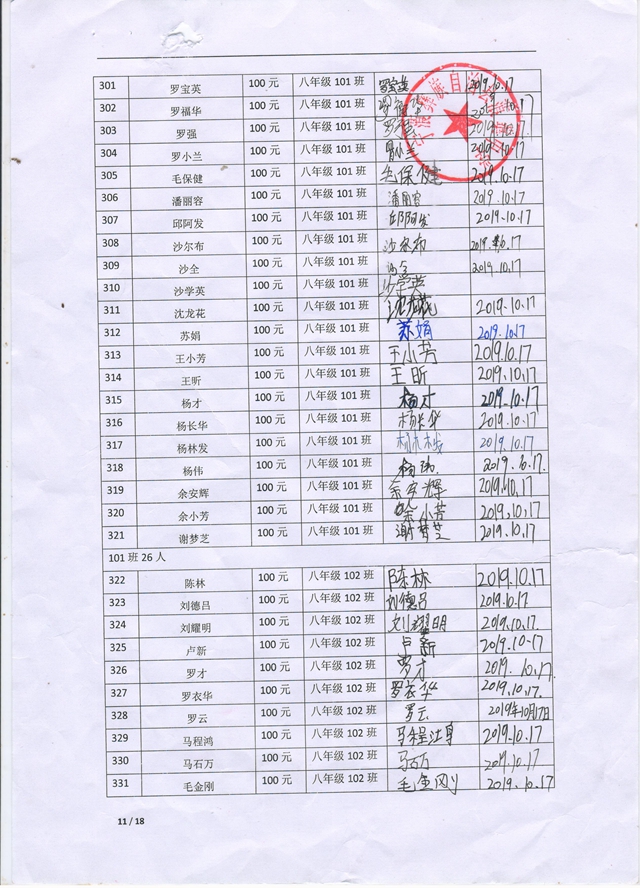 301 罗宝英 100元 八年级101班 罗宝英 2019.10.17
302 罗福华 100元 八年级101班 2019.10.17
303 罗强 100元 八年级101班 罗强 2019.10.17
304 罗小兰 100元 八年级101班 罗小兰 2019.10.17
305 毛保健 100元 八年级101班 毛保健 2019.10.17
306 潘丽容 100元 八年级101班 潘丽容 2019.10.17
307 邱阿发 100元 八年级101班 邱阿发 2019.10.17
308 沙尔布 100元 八年级101班 沙尔布 2019.10.17
309 沙全 100元 八年级101班 沙全 2019.10.17
310 沙学英 100元 八年级101班 沙学英
311 沈龙花 100元 八年级101班 沈龙花 2019.10.17
312 苏娟 100元 八年级101班 苏娟 2019.10.17
313 王小芳 100元 八年级101班 王小芳 2019.10.17
314 王昕 100元 八年级101班 王昕 2019.10.17
315 杨才 100元 八年级101班 杨才 2019.10.17
316 杨长华 100元 八年级101班 杨长华 2019.10.17
317 杨林发 100元 八年级101班 杨林发 2019.10.17
318 杨伟 100元 八年级101班 杨伟 2019.10.17.
319 余安辉 100元 八年级101班 余安辉 2019.10.17
320 余小芳 100元 八年级101班 余小芳 2019.10.17
321 谢梦芝 100元 八年级101班 谢梦芝 2019.10.17
101班26人
322 陈林 100元 八年级102班 陈林 2019.10.17
323 刘德吕 100元 八年级102班 刘德吕 2019.10.17
324 刘耀明 100元 八年级102班 刘耀明 2019.10.17
325 卢新 100元 八年级102班 卢新 2019.10-17
326 罗才 100元 八年级102班 罗才 2019.10.17
327 罗衣华 100元 八年级102班 罗衣华 2019.10.17.
328 罗云 100元 八年级102班 罗云 2019年10月17日
329 马程鸿 100元 八年级102班 马程鸿 2019.10.17
330 马石万 100元 八年级102班 马石万 2019.10.17
331 毛金刚 100元 八年级102班 毛金刚 2019.10.17
11 / 18